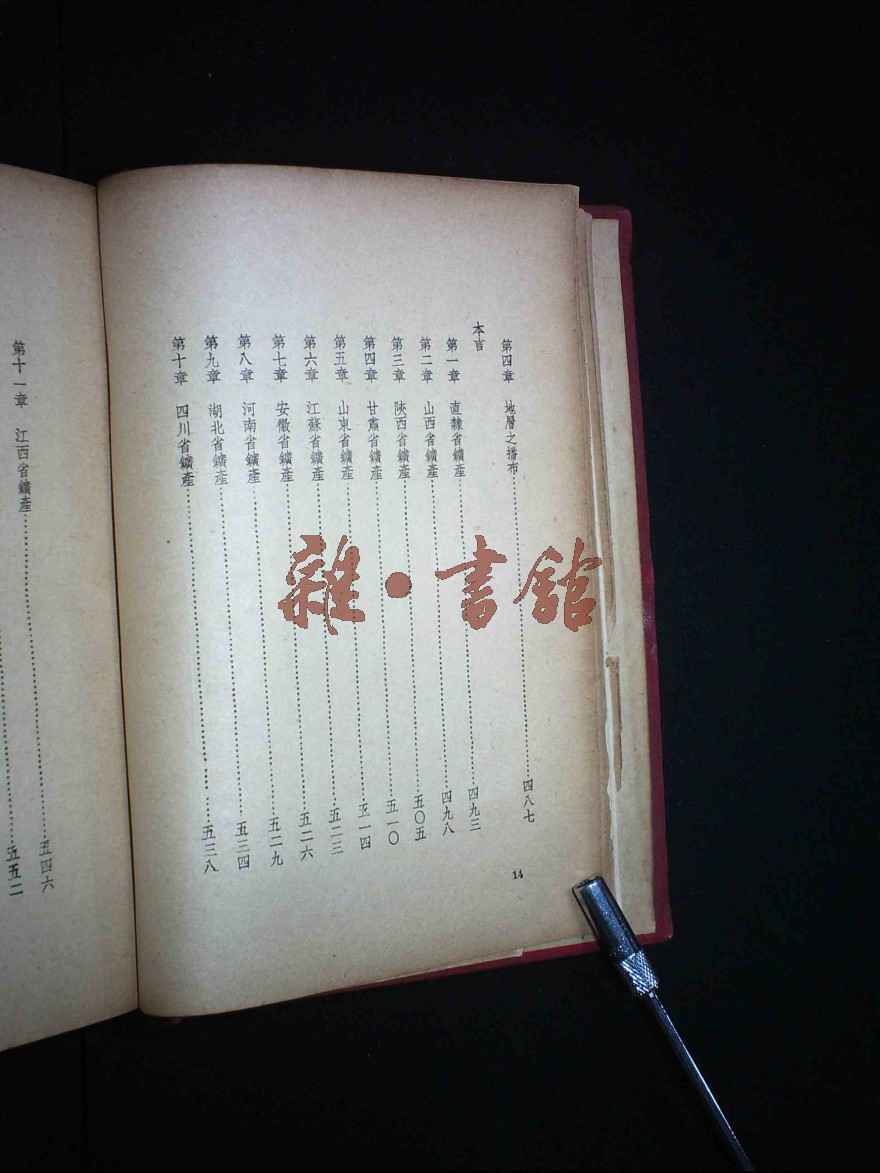 第四章　地層之播布……四八七
本言
第一章　直隸省鑛產……四九三
第二章　山西省鑛產……四九八
第三章　陝西省鑛產……五〇五
第四章　甘肅省鑛產……五一〇
第五章　山東省鑛產……五一四
第六章　江蘇省鑛產……五二三
第七章　安徽省鑛產……五二六
第八章　河南省鑛產……五二九
第九章　湖北省鑛產……五三四
第十章　四川省鑛產……五三八
14
第十一章　江西省鑛產……五四六
……五五二
雜·書館